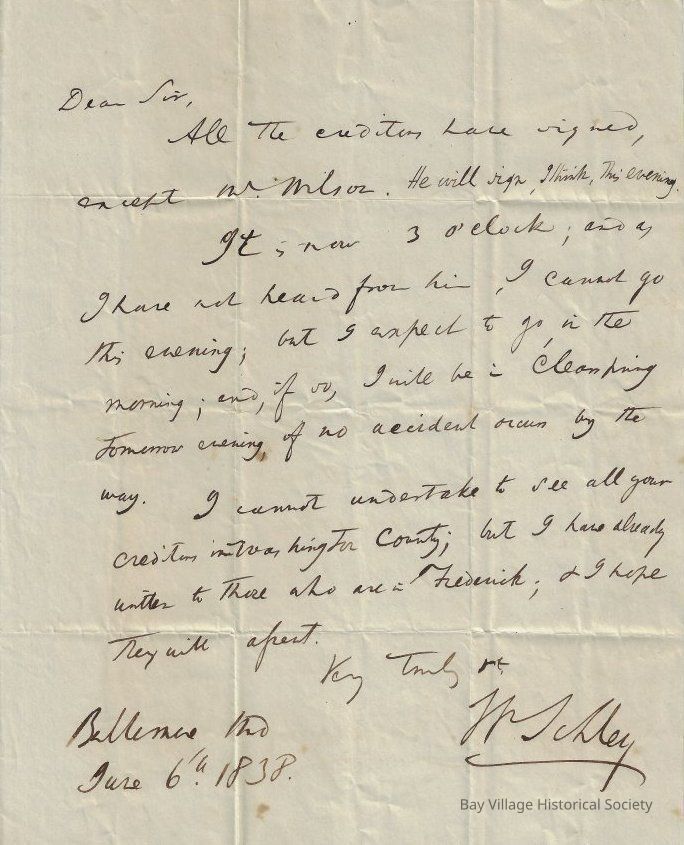 Dear Sir,
All the creditors have signed,
except Mr. Wilson. He will sign, I think, this evening.
It is now 3 o'clock; and as
I have not heard from him, I cannot go
this evening; but I expect to go, in the
morning; and, if so, I will be in Clearspring
tomorrow evening, if no accident occurs by the
way. I cannot undertake to see all your
creditors in Washington County; but I have already
written to those who are in Frederick; & I hope
they will assent.
Very truly
Wm Schley
Baltimore Md
June 6th. 1838.
Bay Village Historical Society